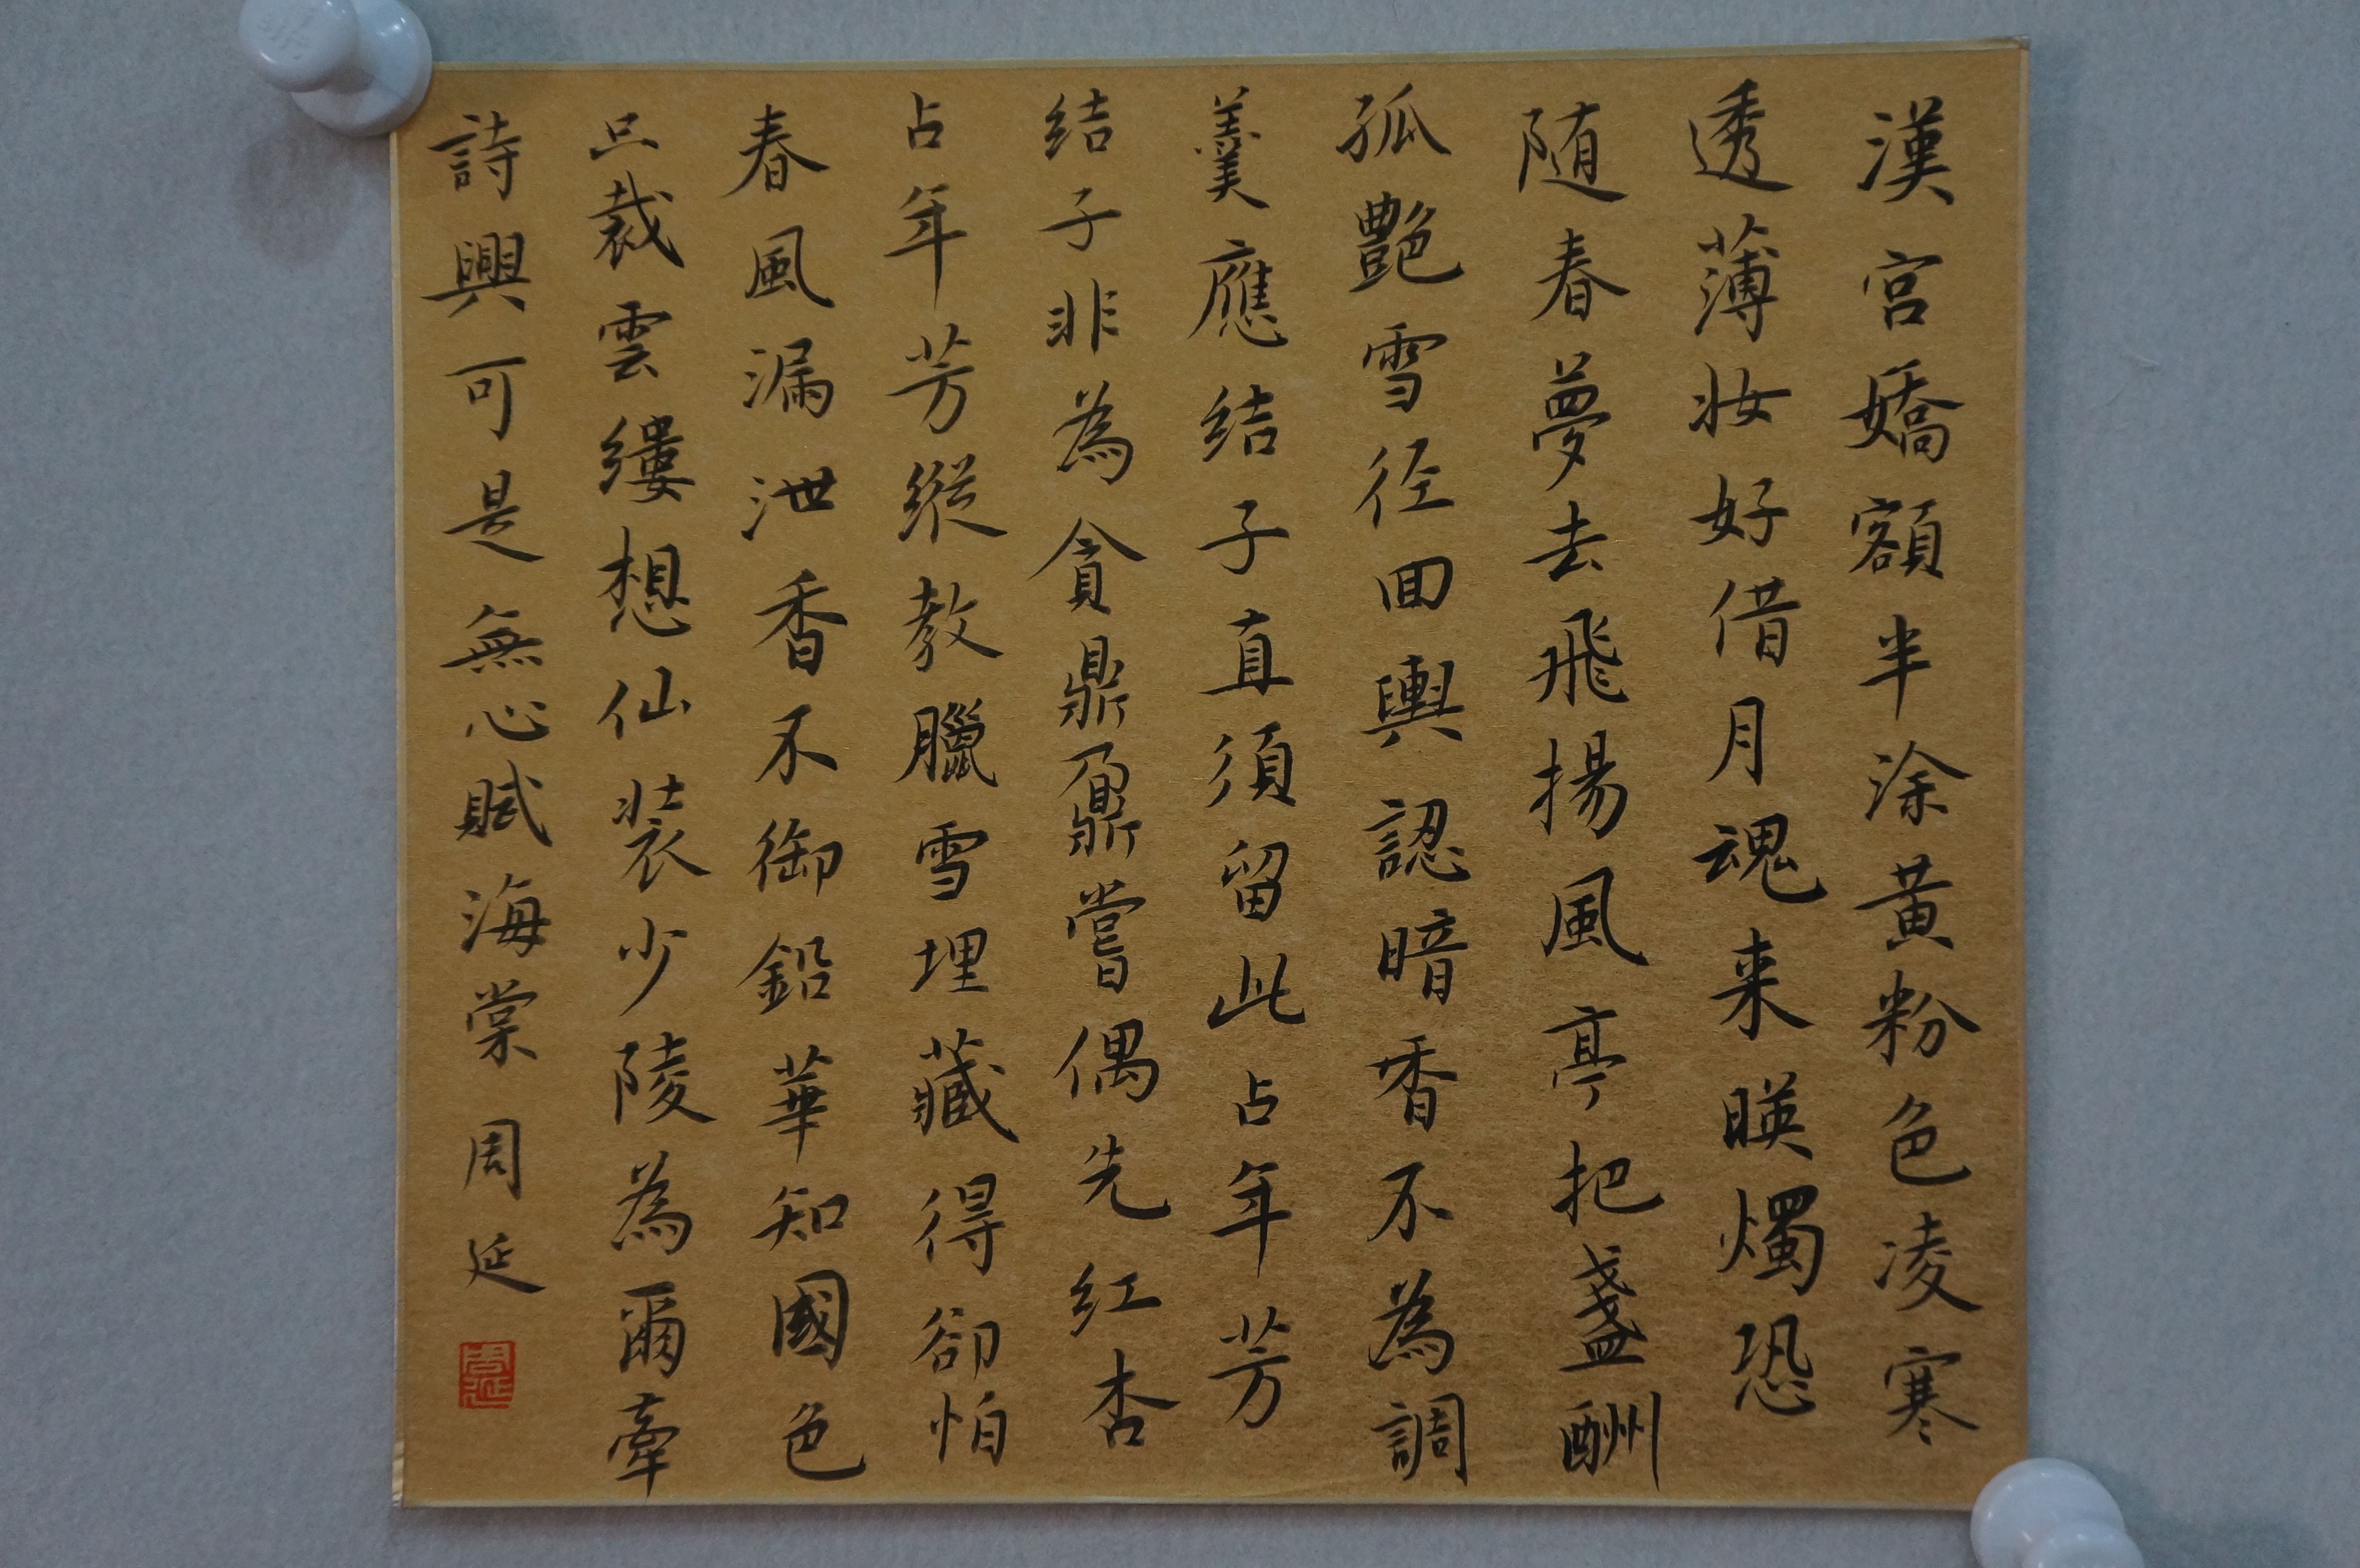 漢宮嬌額半涂黃粉色凌寒
透薄妝好借月魂来暎燭恐
随春夢去飛揚風亭把盞酬
孤艷雪径回輿認暗香不為調
羹應結子直須留此占年芳
结子非為貪鼎鼐嘗偶先红杏
占年芳縱教臘雪埋藏得卻怕
春風漏泄香不御鉛華知國色
只裁雲缕想仙装少陵為爾牽
詩興可是無心賦海棠 周延
周延